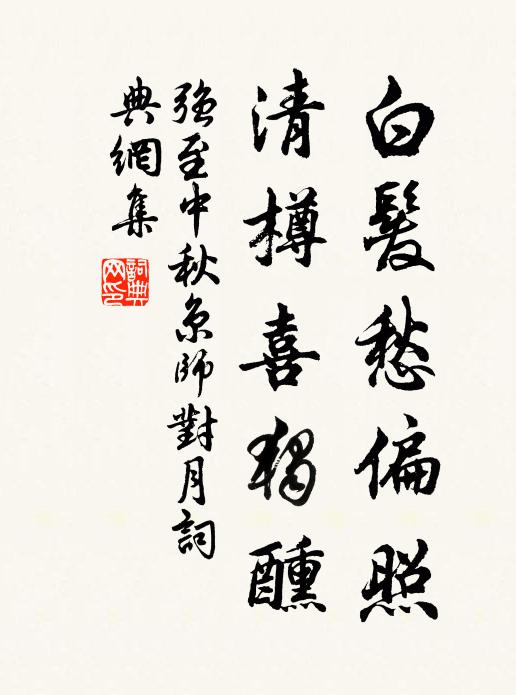 白髮愁偏照
清樽喜獨醺
強至中秋京師對月詞
典網集
詞典網印